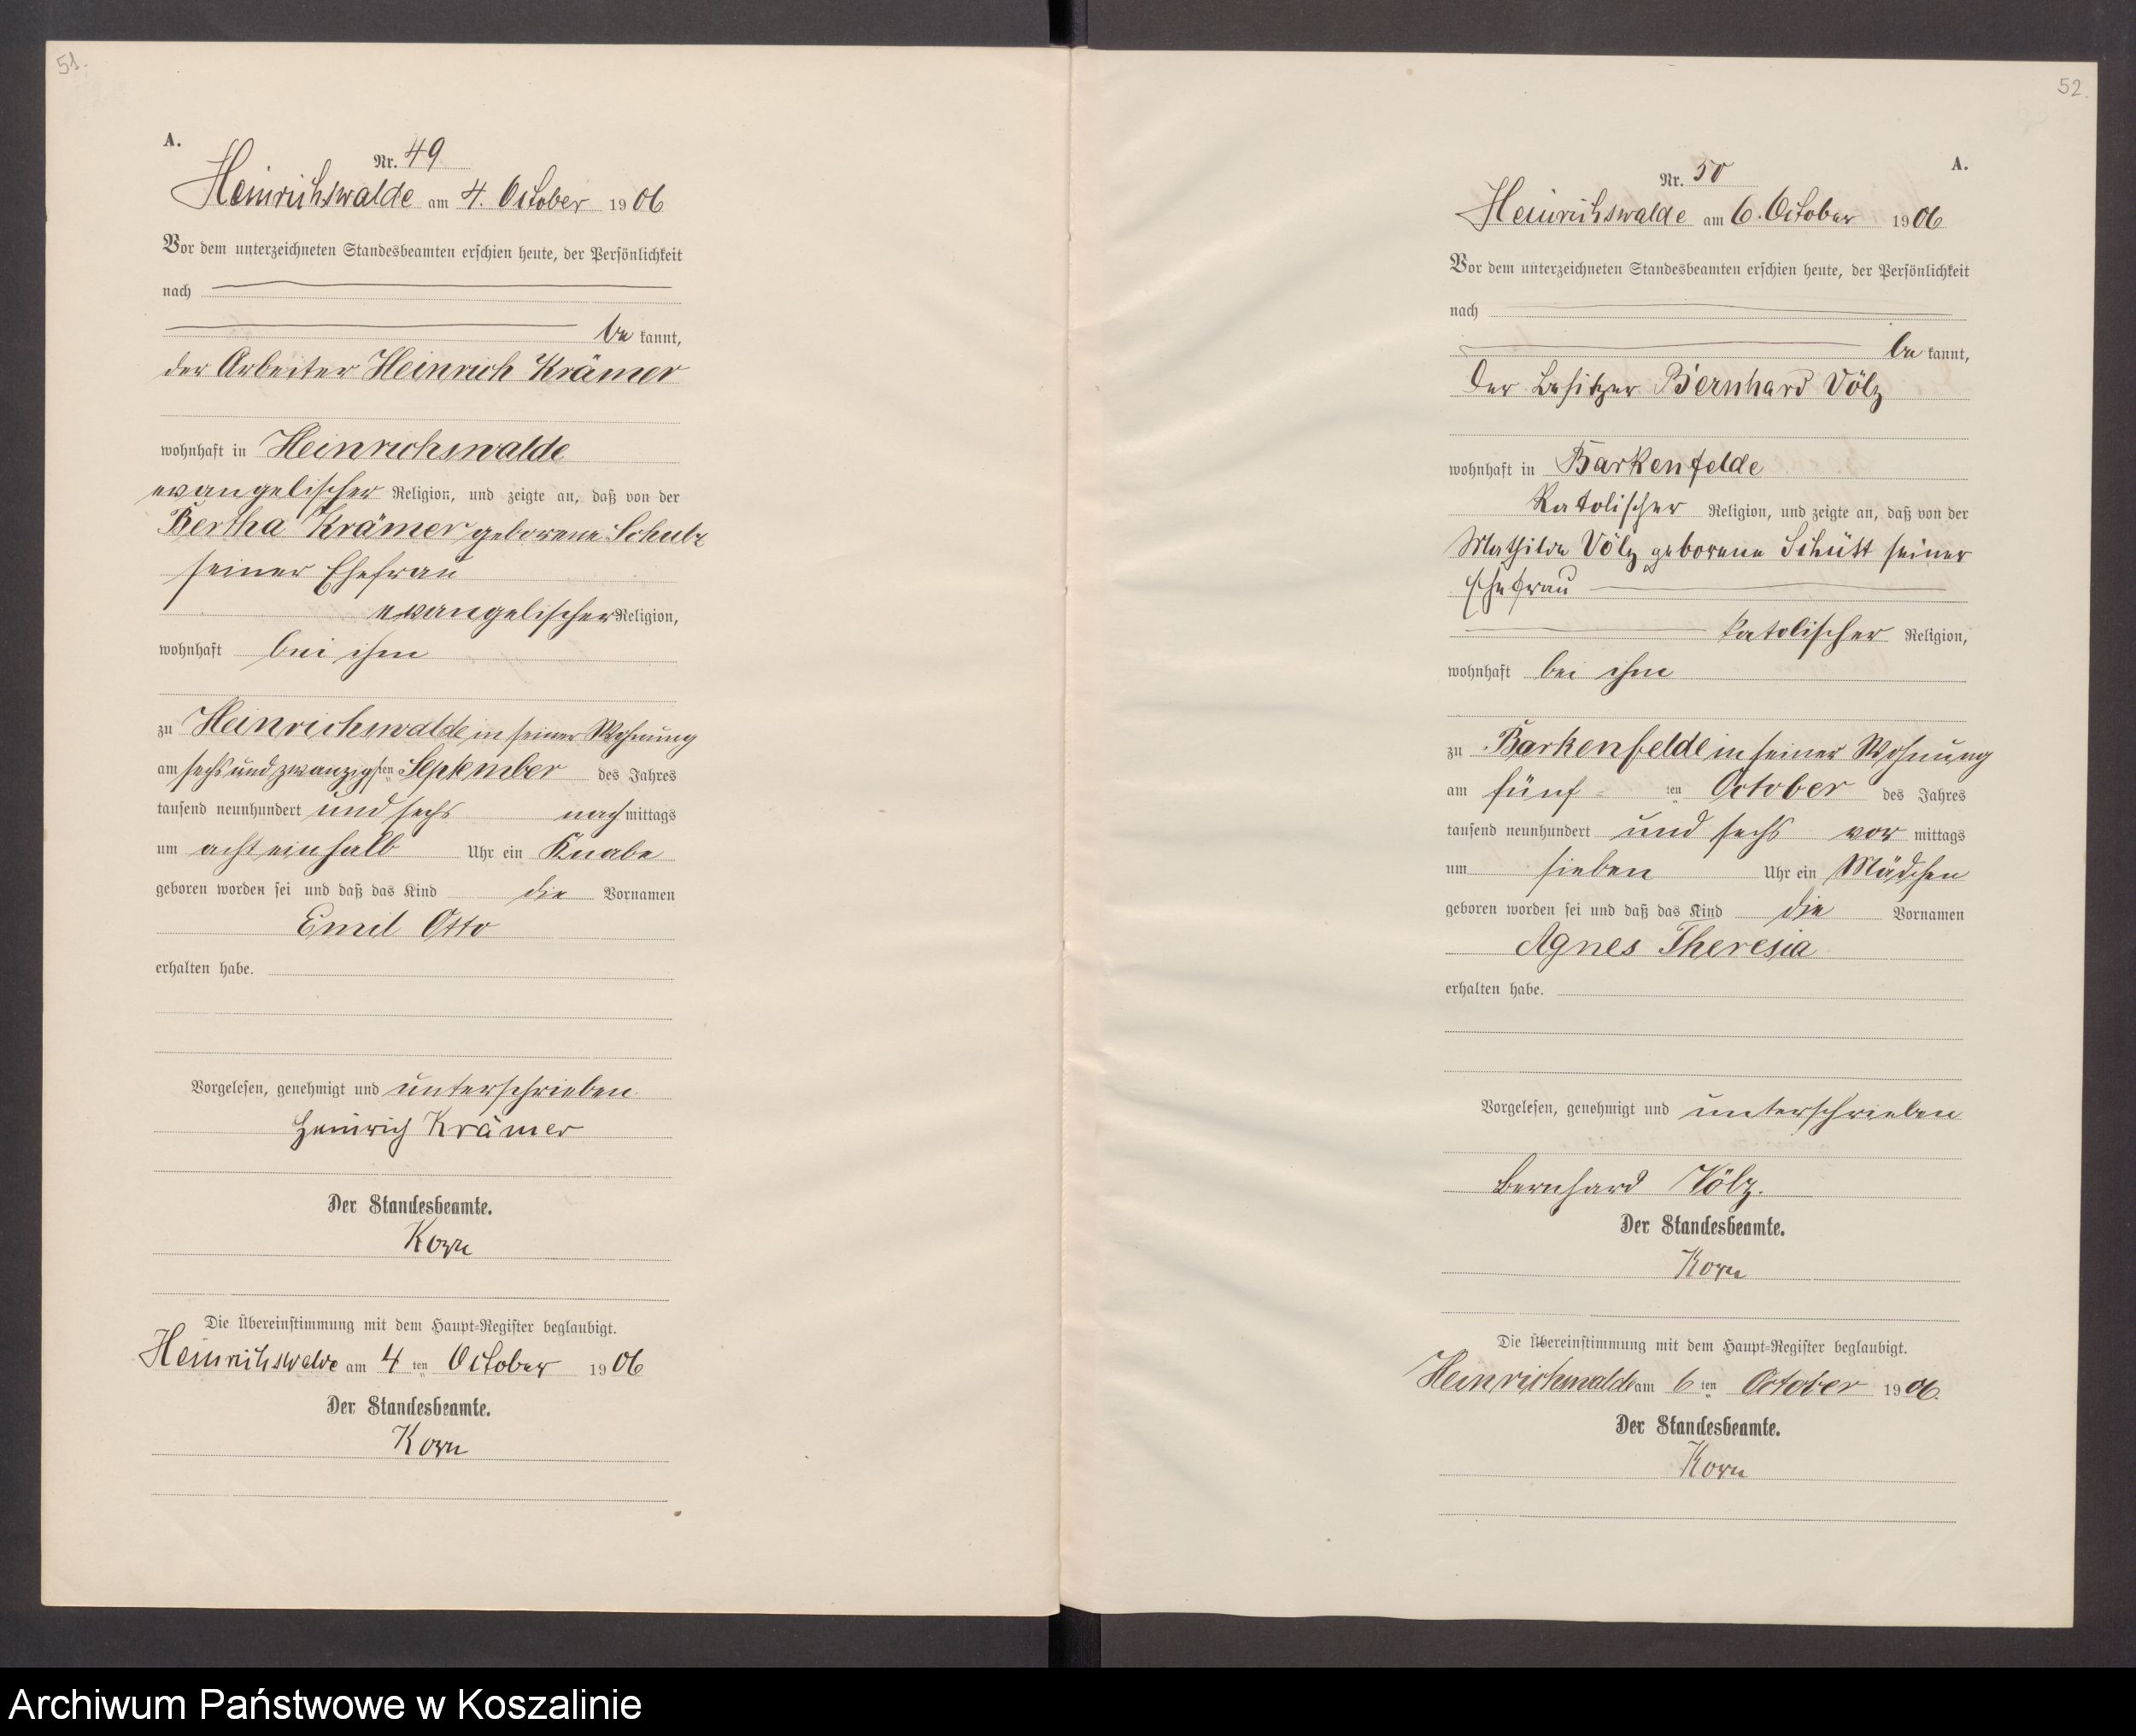 51.
A.
Nr. 49
Heinrichswalde am 4. October 1906
Vor dem unterzeichneten Standesbeamten erschien heute, der Persönlichkeit
nach
be kannt,
der Arbeiter Heinrich Krämer
wohnhaft in Heinrichswalde
evangelischer Religion, und zeigte an, daß von der
Bertha Krämer geborene Schulz
seiner Ehefrau
evangelischer Religion,
wohnhaft bei ihm
zu Heinrichswalde in seiner Wohnung
am sechs und zwanzigsten ten September des Jahres
tausend neunhundert und sechs nach mittags
um acht einhalb Uhr ein Knabe
geboren worden sei und daß das Kind die Vornamen
Emil Otto
erhalten habe.
Vorgelesen, genehmigt und unterschrieben
Heinrich Krämer
Der Standesbeamte.
Korn
Die Übereinstimmung mit dem Haupt-Register beglaubigt.
Heinrichswalde am 4 ten October 1906
Der Standesbeamte.
Korn
52.
A.
Nr. 50
Heinrichswalde am 6. October 1906
Vor dem unterzeichneten Standesbeamten erschien heute, der Persönlichkeit
nach
be kannt,
der Besitzer Bernhard Völz
wohnhaft in Barkenfelde
Katolischer Religion, und zeigte an, daß von der
Mathilde Völz geborene Schütt seiner
Ehefrau
katolischer Religion,
wohnhaft bei ihm
zu Barkenfelde in seiner Wohnung
am fünf- ten October des Jahres
tausend neunhundert und sechs vor mittags
um sieben Uhr ein Mädchen
geboren worden sei und daß das Kind die Vornamen
Agnes Theresia
erhalten habe.
Vorgelesen, genehmigt und unterschrieben
Bernhard Völz.
Der Standesbeamte.
Korn
Die Übereinstimmung mit dem Haupt-Register beglaubigt.
Heinrichswalde am 6 ten October 1906.
Der Standesbeamte.
Korn
Archiwum Państwowe w Koszalinie